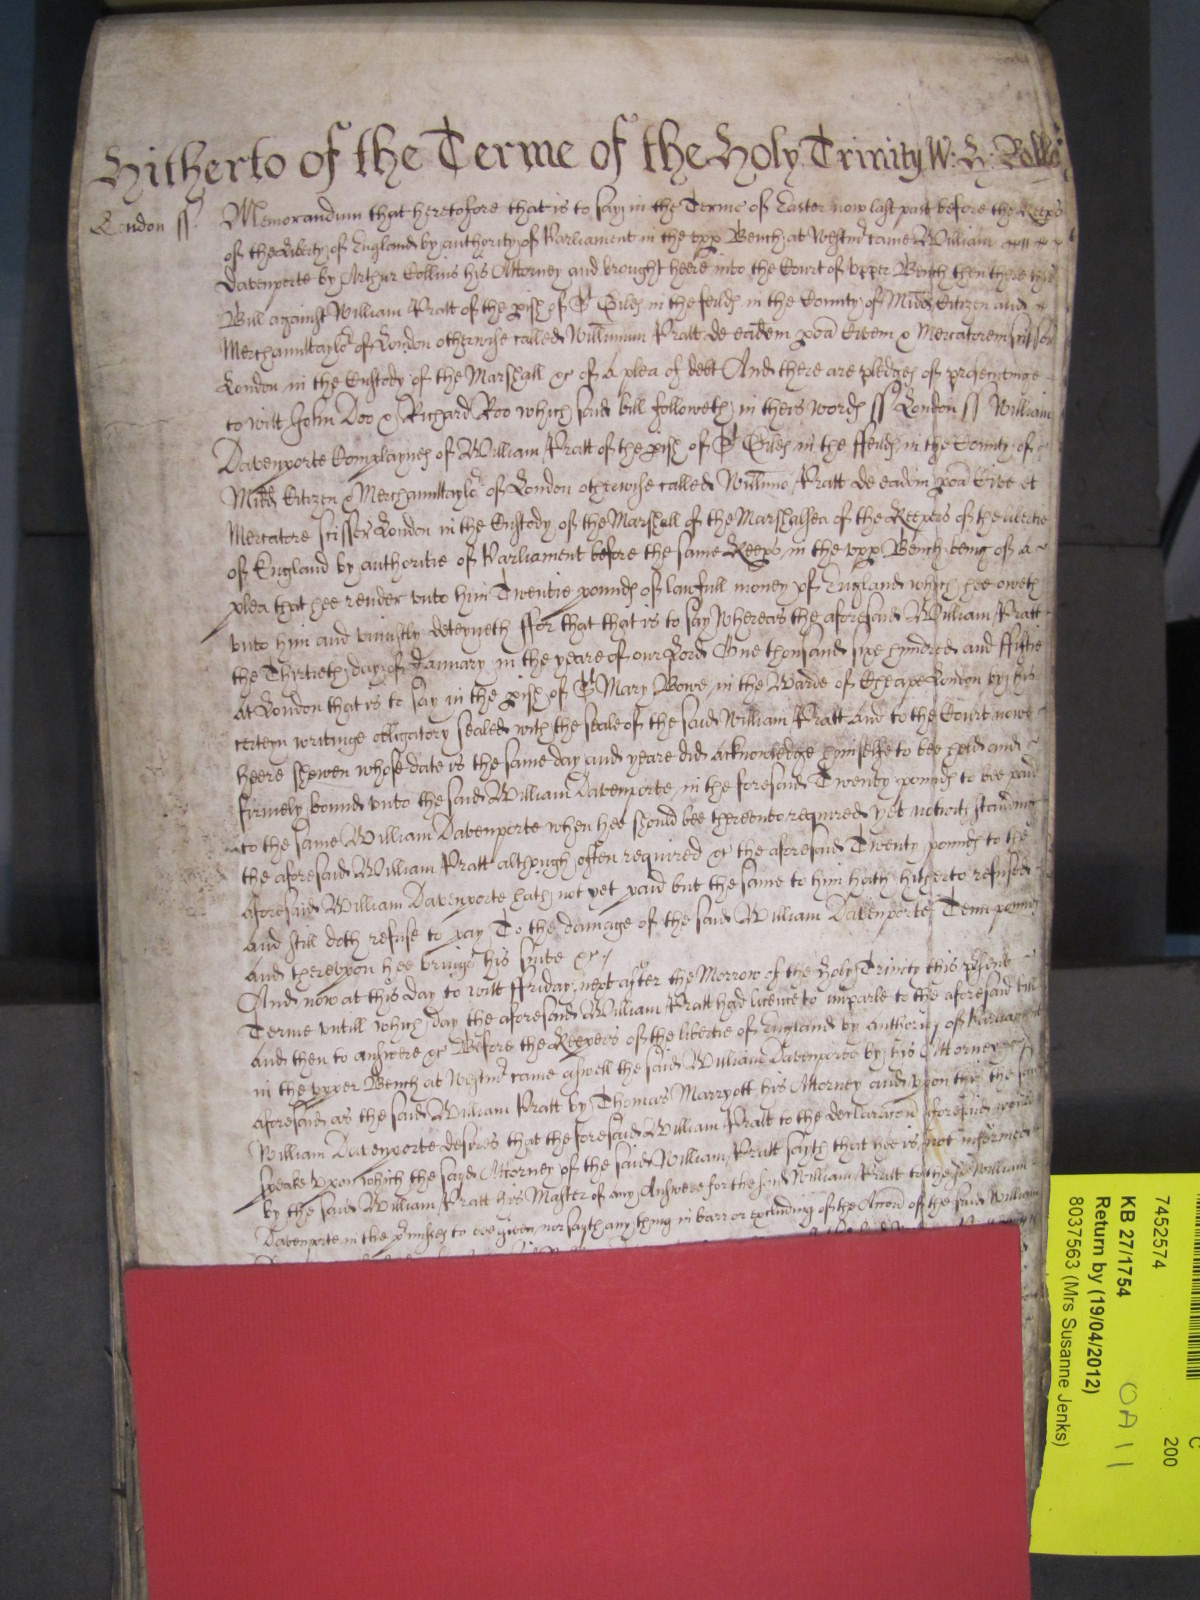 Hitherto of the Terme of the Holy Trinity W: H: Rolle
London ss. Memorandum that heretofore that is to say in the Terme of Easter now last past before the Keeps
of the liberty of England by authority of Parliament in the upp Bench at Westmr came William
Davenporte by Arthur Collins his Attorney and brought heere into the Court of upper Bench then there his
Bill against William Pratt of the pish of St Giles in the feilds in the County of Midd Citizen and
Merchanttaylor of London otherwise called Willimum Pratt de eadem poa Civem & Mercatorem scissor
London in the Custody of the Marshall &c of a plea of debt And there are pledges of prosecutinge
to witt John Doo & Richard Roo which said bill followeth in theis words ss London ss William
Davenporte Complaynes of William Pratt of the pish of St Giles in the ffeilds in the County of
Midd Citizen & Merchanttaylor of London otherwise called Willimo Pratt de eadem poa Cive et
Mercatore scissor London in the Custody of the Marshall of the Marshalsea of the Keepers of the libertie
of England by authoritie of Parliament before the same Keeps in the upp Bench being of a
plea that hee render unto him Twentie pounds of lawfull money of England which hee oweth
unto him and uniustly deteyneth ffor that that is to say Whereas the aforesaid William Pratt
the Thirtieth day of January in the yeare of our Lord One thousand sixe hundred and ffiftie
at London that is to say in the pish of St Mary Bowe in the Warde of Cheape London by his
certeyn writinge obligatory sealed with the seale of the said William Pratt And to the Court nowe
heere shewen whose date is the same day and yeare did acknowledge himselfe to bee held and
firmely bound unto the said William Davenporte in the foresaid Twenty pounds to bee paid
to the same William Davenporte when hee should bee thereunto required yet notwithstanding
the aforesaid William Pratt although often required &c the aforesaid Twenty pounds to the
aforesaid William Davenporte hath not yet paid but the same to him hath hitherto refused
and still doth refuse to pay To the damage of the said William Davenporte Tenn pounds
and thereupon hee brings his suite &c
And now at this day to witt ffriday next after the Morrow of the holy Trinity this psent
Terme untill which day the aforesaid William Pratt had licence to imparle to the aforesaid bill
and then to answere &c Before the Keepers of the libertie of England by authority of Parliament
in the upper Bench at Westmr came aswell the said William Davenporte by his Attorney
aforesaid as the said William Pratt by Thomas Marryott his Attorney and upon this the said
William Davenporte desires that the foresaid William Pratt to the declaracon aforesaid would
speake Upon which the said Attorney of the said William Pratt sayth that hee is not informed
by the said William Pratt his Master of any Answere for the said William Pratt to the sd William
Davenporte in the pmises to bee given nor sayth any thing in barr or excluding of the Accon of the said William
7452574
KB 27/1754
Return by (19/04/2012)
8037563 (Mrs Susanne Jenks)
C
200
OA 11